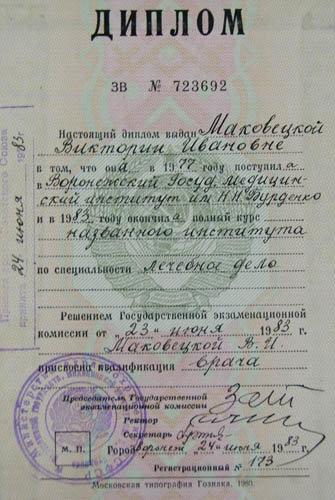 ДИПЛОМ
ЗВ № 723692
Настоящий диплом выдан Маковецкой
Виктории Ивановне
в том, что она в 1977 году поступила
в Воронежский Госуд. Медицин-
ский институт им. Н.Н. Бурденко
и в 1983 году окончила полный курс
названного института
по специальности лечебное дело
Решением Государственной экзаменационной
комиссии от "23" июня 1983 г.
Маковецкой В.И.
присвоена квалификация врача
Председатель Государственной
экзаменационной комиссии
Ректор
Секретарь
М. П.
Город Воронеж "24" июня 1983
Регистрационный № 173
Московская типография Гознака. 1980.
24 июня 1983г.